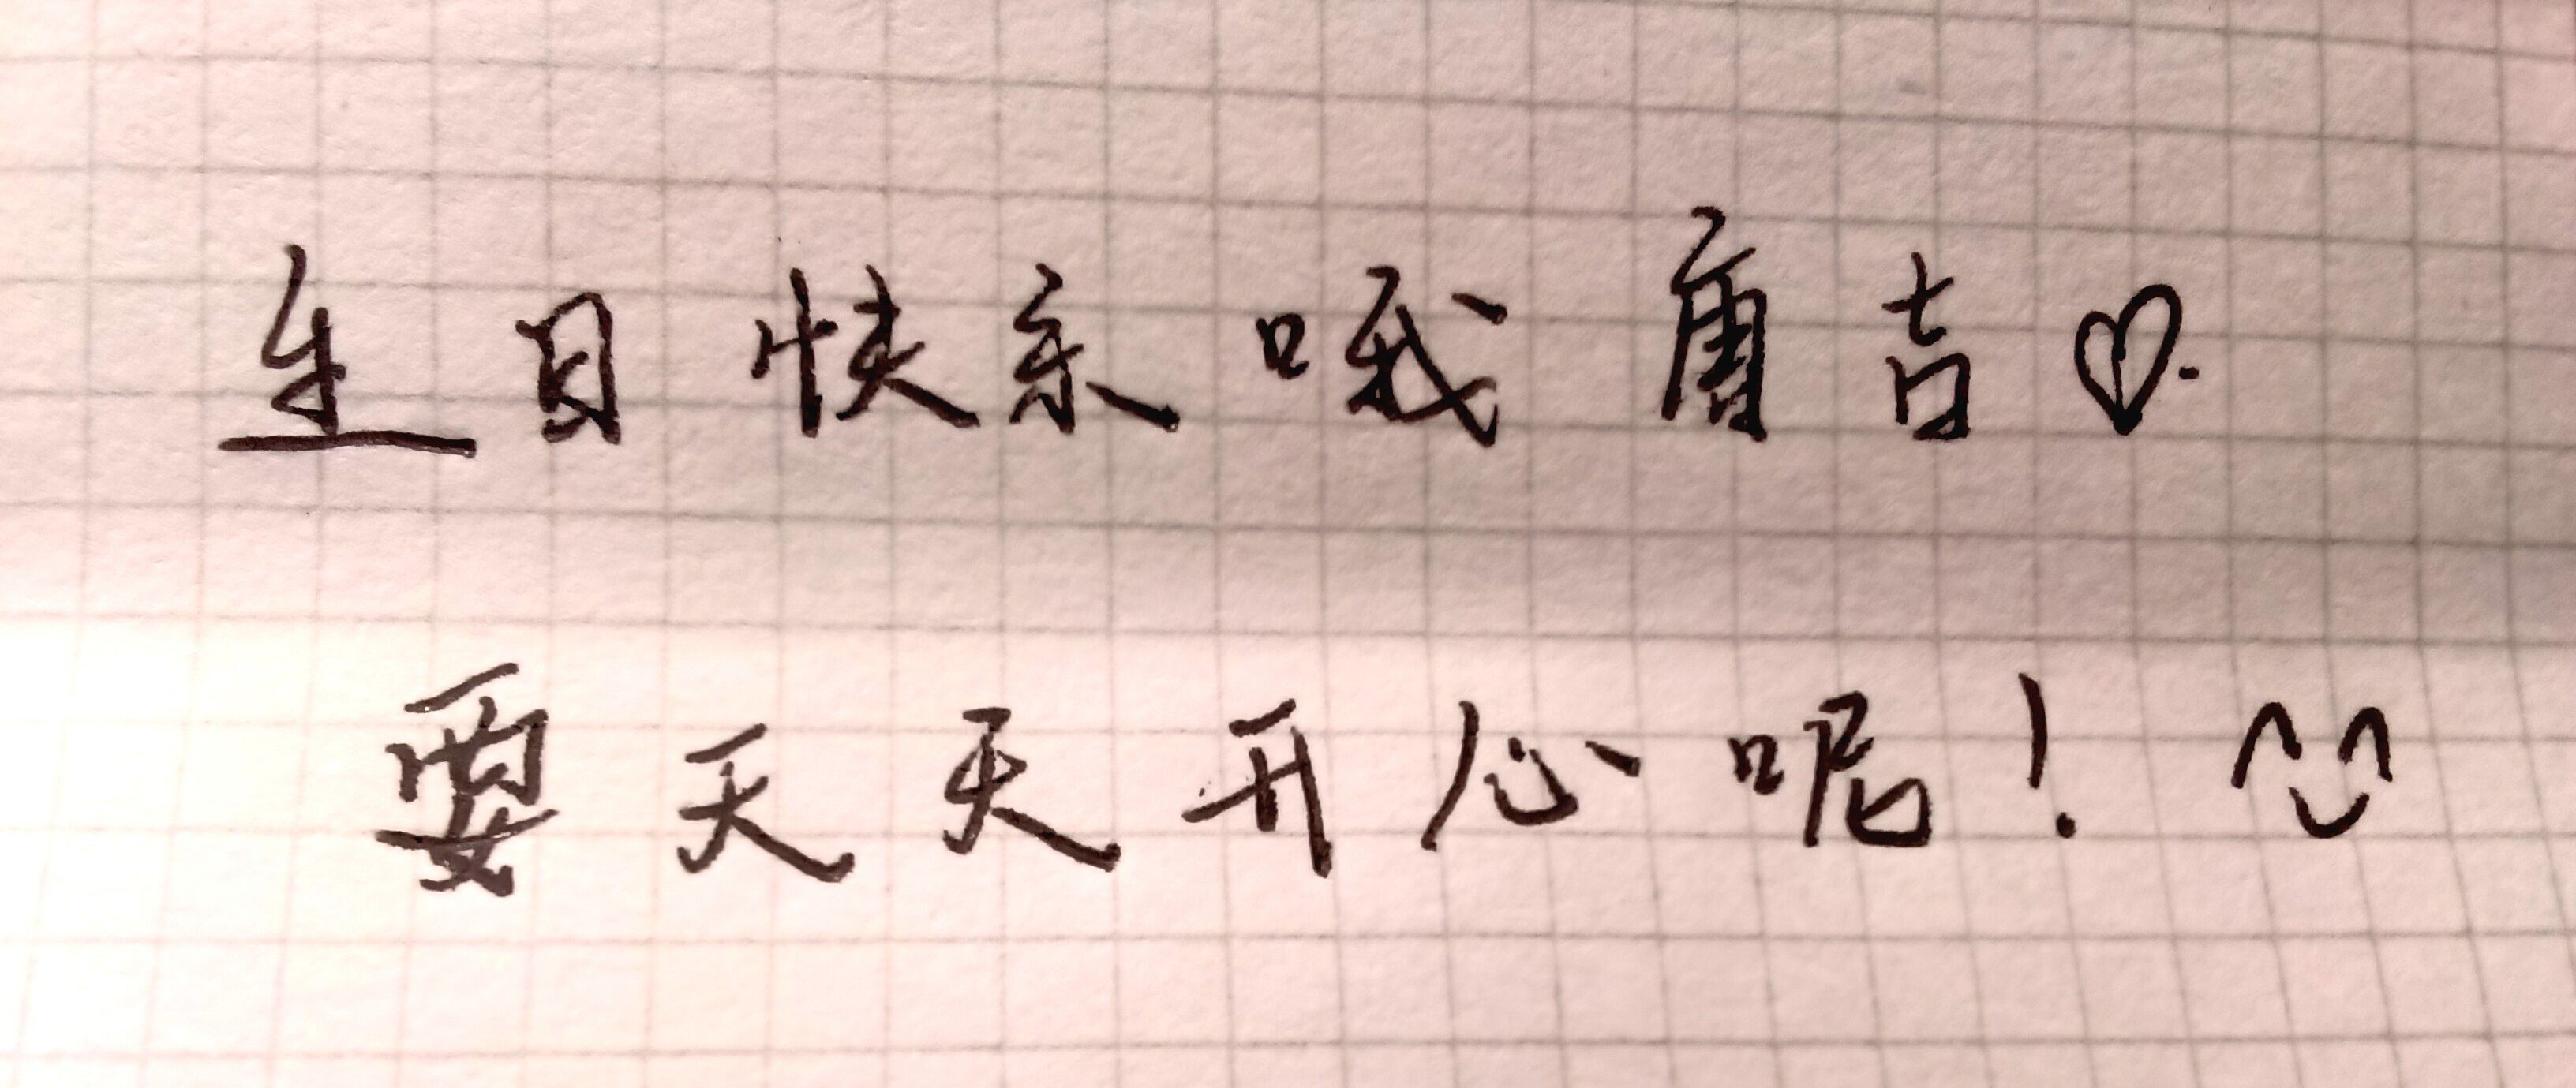 生日快乐哦唐吉♡.
要天天开心呢！